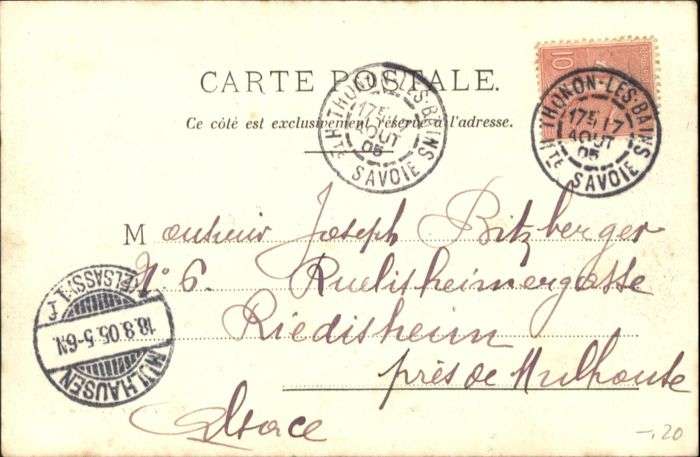 10
CARTE POSTALE.
Ce côté est exclusivement réservé à l'adresse.
THONON-LES-BAINS
17 AOUT 05
Hte SAVOIE
THONON-LES-BAINS
17 AOUT 05
Hte SAVOIE
Monsieur Joseph Bitzberger
No 6. Ruelisheimergasse
Riedisheim
près de Mulhouse
Alsace
MÜLHAUSEN
18.8.05.5-6N.
(ELSASS)
-.20